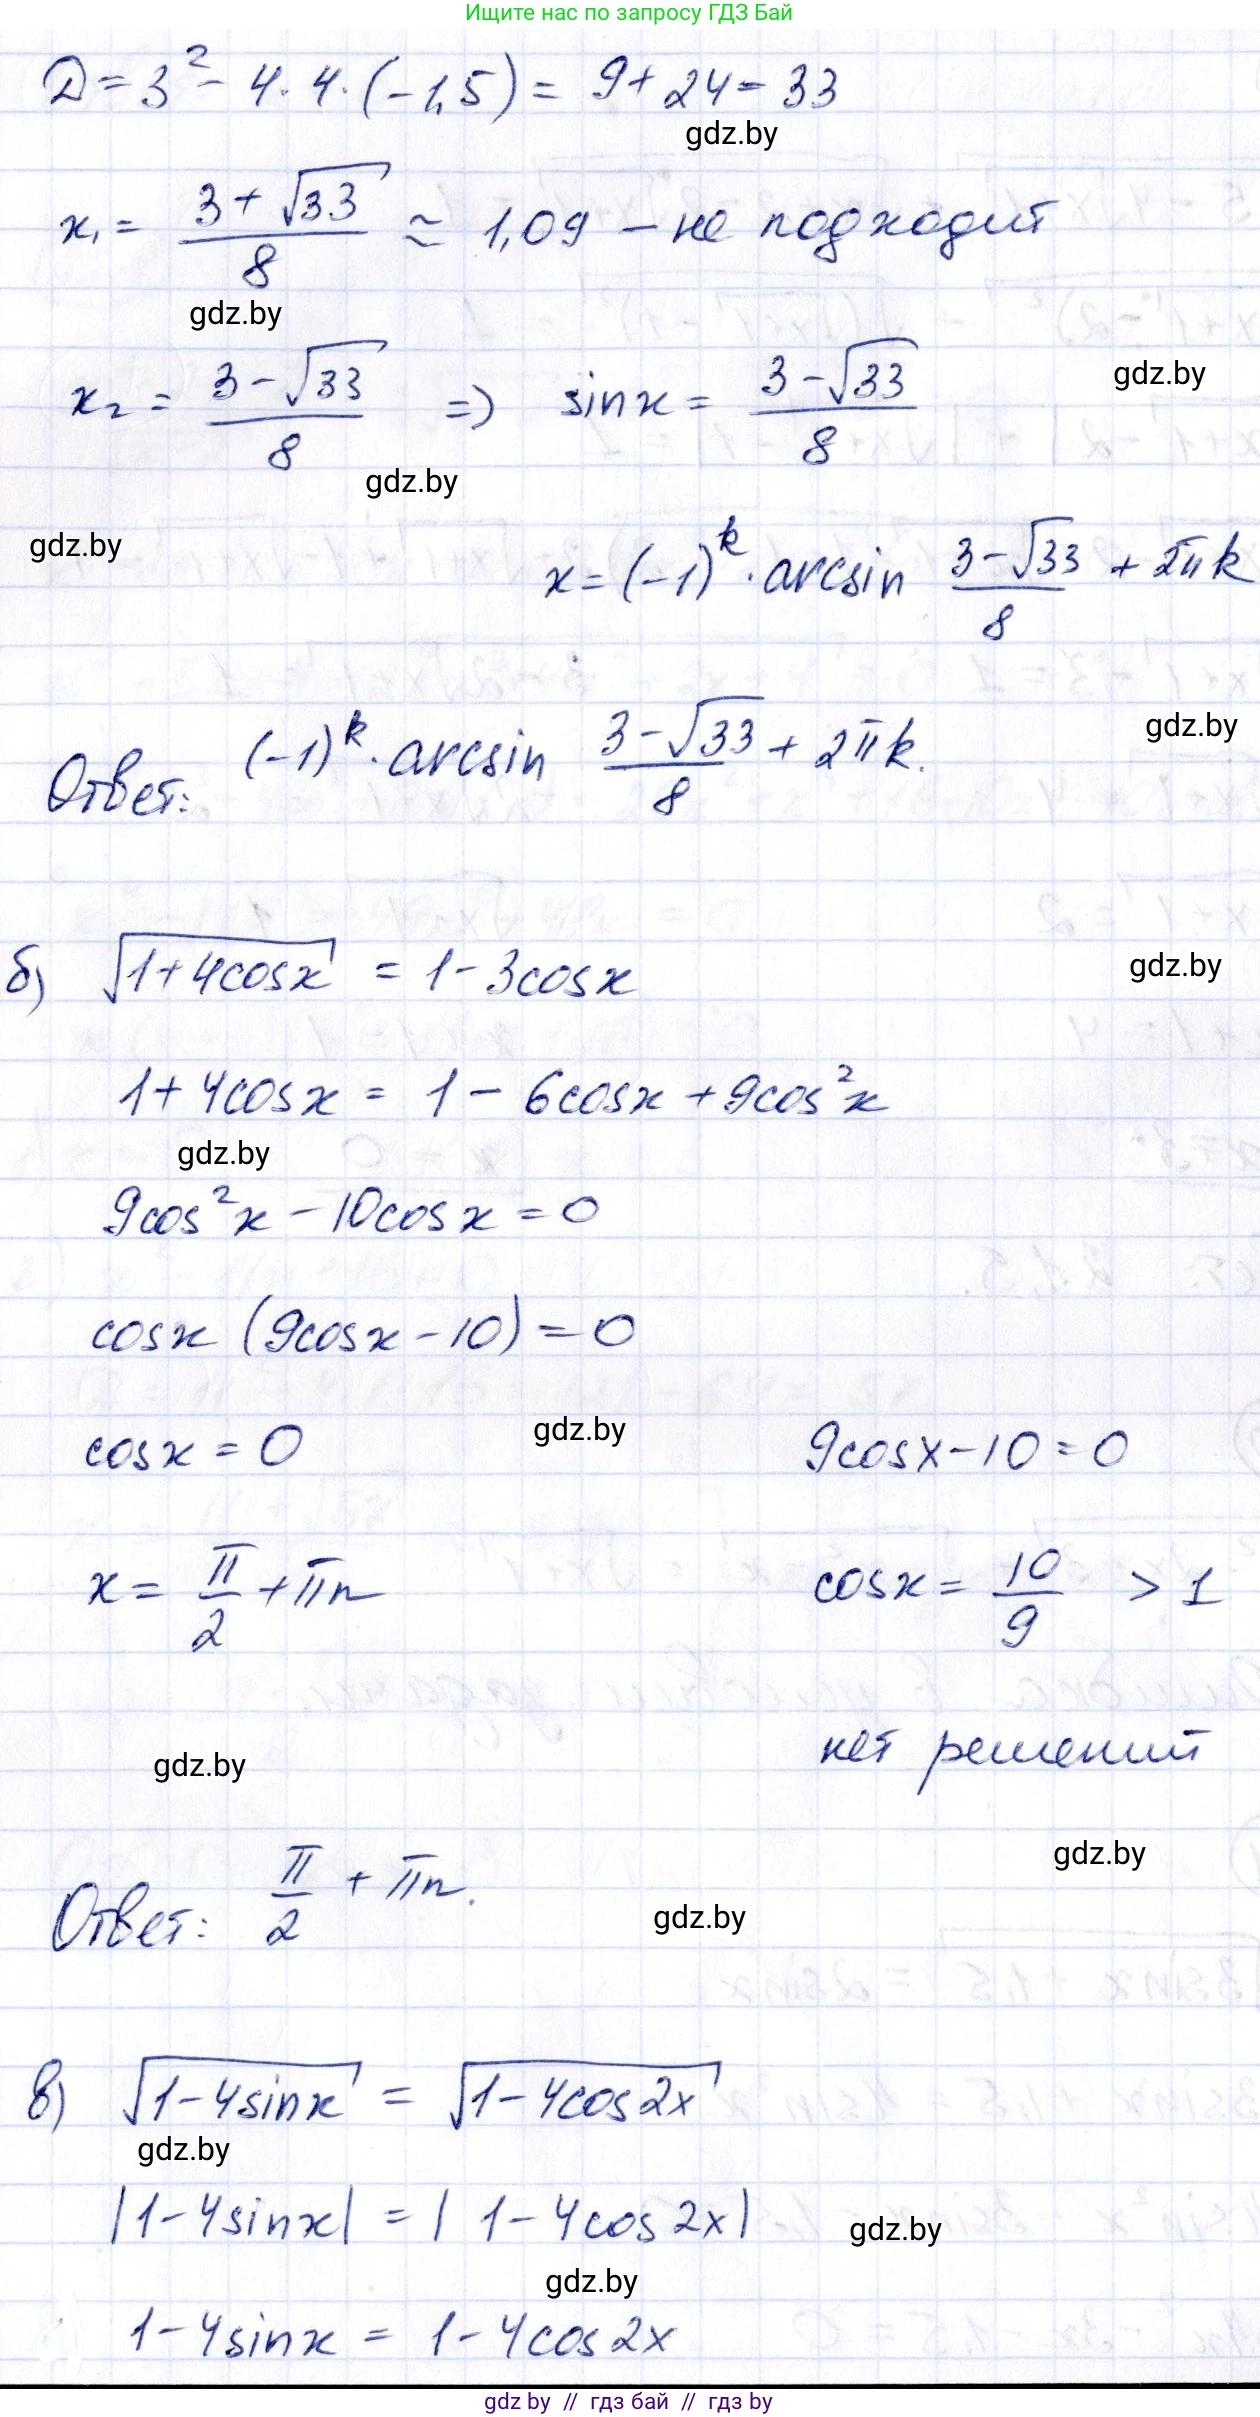 Ищите нас по запросу ГДЗ Бай
D = 3² - 4 · 4 · (-1,5) = 9 + 24 = 33
gdz.by
x₁ = (3 + √33)/8 ≈ 1,09 - не подходит
gdz.by
x₂ = (3 - √33)/8 => sinx = (3 - √33)/8
gdz.by
gdz.by
gdz.by
x = (-1)^k · arcsin (3 - √33)/8 + 2πk
gdz.by
Ответ: (-1)^k · arcsin (3 - √33)/8 + 2πk.
б) √(1+4cosx) = 1 - 3cosx
gdz.by
1 + 4cosx = 1 - 6cosx + 9cos²x
gdz.by
9cos²x - 10cosx = 0
cosx (9cosx - 10) = 0
gdz.by
cosx = 0 9cosx - 10 = 0
x = π/2 + πn cosx = 10/9 > 1
нет решений
gdz.by
gdz.by
Ответ: π/2 + πn.
gdz.by
в) √(1-4sinx) = √(1-4cos2x)
gdz.by
|1-4sinx| = |1-4cos2x|
gdz.by
gdz.by
1-4sinx = 1-4cos2x
gdz by // гдз бай // гдз by